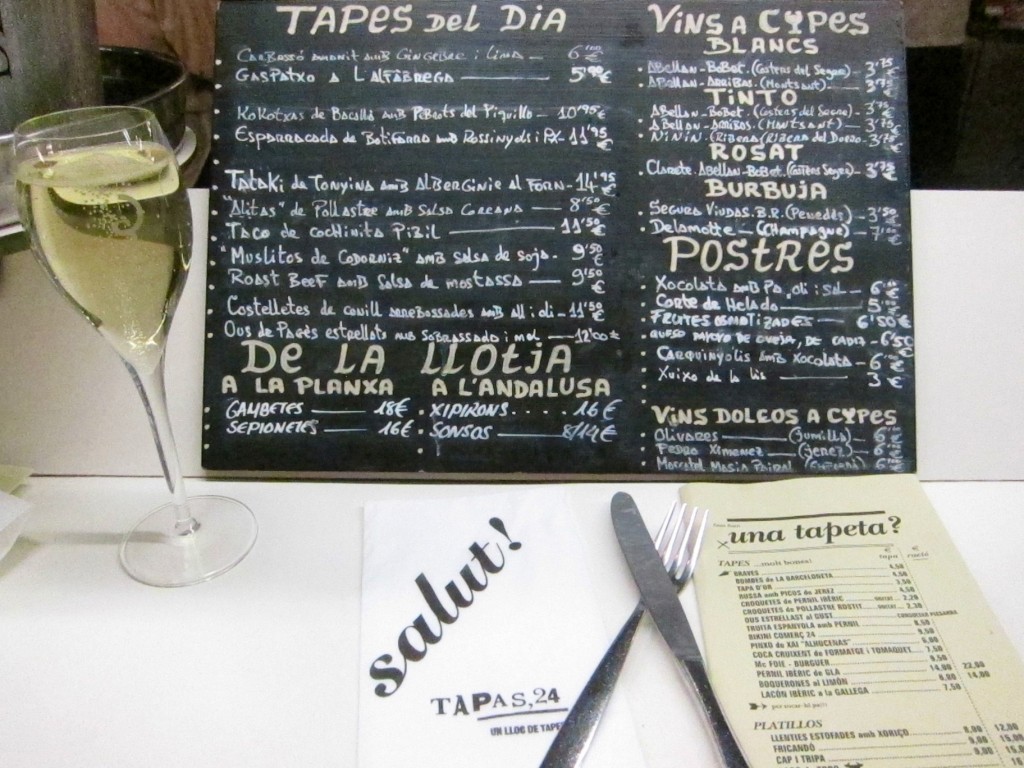 TAPES DEL DIA
CARBASSÓ AMB GINGEBRE i LIMA 6
GASPATXO A L'ALFÀBREGA 5'90
KOKOTXAS DE BACALLÀ AMB PEBROTS DEL PIQUILLO 10'95 €
ESPARRACADA DE BOTIFARRA AMB ROSSINYOLS i PX 11'95 €
TATAKI DE TONYINA AMB ALBERGINIE AL FORN 14'95 €
"ALITAS" DE POLLASTRE AMB SALSA COREANA 8'50 €
TACO DE COCHINITA PIBIL 11'50 €
"MUSLITOS DE CODORNIZ" AMB SALSA DE SOJA 9'50 €
ROAST BEEF AMB SALSA DE MOSTASSA 9'50 €
COSTELLETES DE CONILL ARREBOSSADES AMB ALL i OLI 11'50 €
OUS DE PAGÈS ESTRELLATS AMB SOBRASSADA i MEL 12'00 €
DE LA LLOTJA
A LA PLANXA
GAMBETES 18€
SEPIONETES 16€
A L'ANDALUSA
XIPIRONS .... 16 €
SONSOS 8/14€
VINS A COPES
BLANCS
ABELLAN-BOBET. (COSTERS DEL SEGRE) 3'75
ABELLAN-ARRIBAS. (MONTSANT) 3'75
TINTO
ABELLAN-BOBET. (COSTERS DEL SEGRE) 3'75
ABELLAN-ARRIBAS. (MONTSANT) 3'75
NINÍN (RIBERA DEL DUERO) 3'75
ROSAT
CLARETE. ABELLAN-BOBET. (COSTERS SEGRE) 3'75 €
BURBUJA
SEGURA VIUDAS. B.R. (PENEDÈS) 3'50
DELAMOTTE (CHAMPAGNE) 7'00 €
POSTRES
XOCOLATA AMB PA, OLI i SAL 6 €
CORTE DE HELADO 5 €
FRUTES OSMOTIZADES 6'50€
QUESO PAYOYO DE OVEJA, DE CADIZ 6'50 €
CARQUINYOLIS AMB XOCOLATA 6 €
XUIXO DE LA 3 €
VINS DOLÇOS A COPES
OLIVARES (JUMILLA) 6
PEDRO XIMENEZ (JEREZ) 6
MOSCATEL MASIA PAIRAL 6
salut!
TAPAS, 24
UN LLOC DE TAPES
una tapeta?
tapa ració
TAPES ...molt bones!
BRAVES 4,50
BOMBES de LA BARCELONETA 4,50
TAPA D'OR 3,50
RUSSA amb PICOS de JEREZ 4,50
CROQUETES de PERNIL IBÈRIC 2,20
CROQUETES de POLLASTRE ROSTIT 2,30
OUS ESTRELLAST al GUST
TRUITA ESPANYOLA amb PERNIL 8,50
BIKINI COMERÇ 24 9,50
PINXO de XAI "ALHUCENAS" 6,00
COCA CRUIXENT de FORMATGE i TOMAQUET 7,50
Mc FOIE - BURGUER 9,50
PERNIL IBÈRIC de GLA 14,00 22,00
BOQUERONES al LIMÓN 8,00 14,00
LACÓN IBÈRIC a la GALLEGA 7,50
PLATILLOS
LLENTIES ESTOFADES amb XORIÇO 8,00 12,00
FRICANDÓ 9,00 15,00
CAP I TRIPA 9,00 15,00